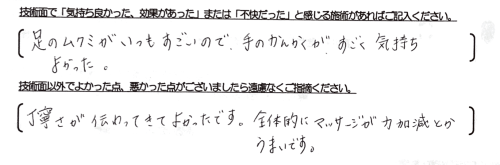 技術面で「気持ち良かった、効果があった」または「不快だった」と感じる施術があればご記入ください。
足のムクミがいつもすごいので、手のかんかくが、すごく気持ち
よかった。
技術面以外でよかった点、悪かった点がございましたら遠慮なくご指摘ください。
丁寧さが伝わってきてよかったです。全体的にマッサージが力加減とか
うまいです。